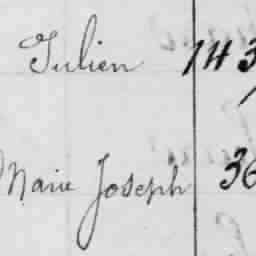 Julien 143
Marie Joseph 36